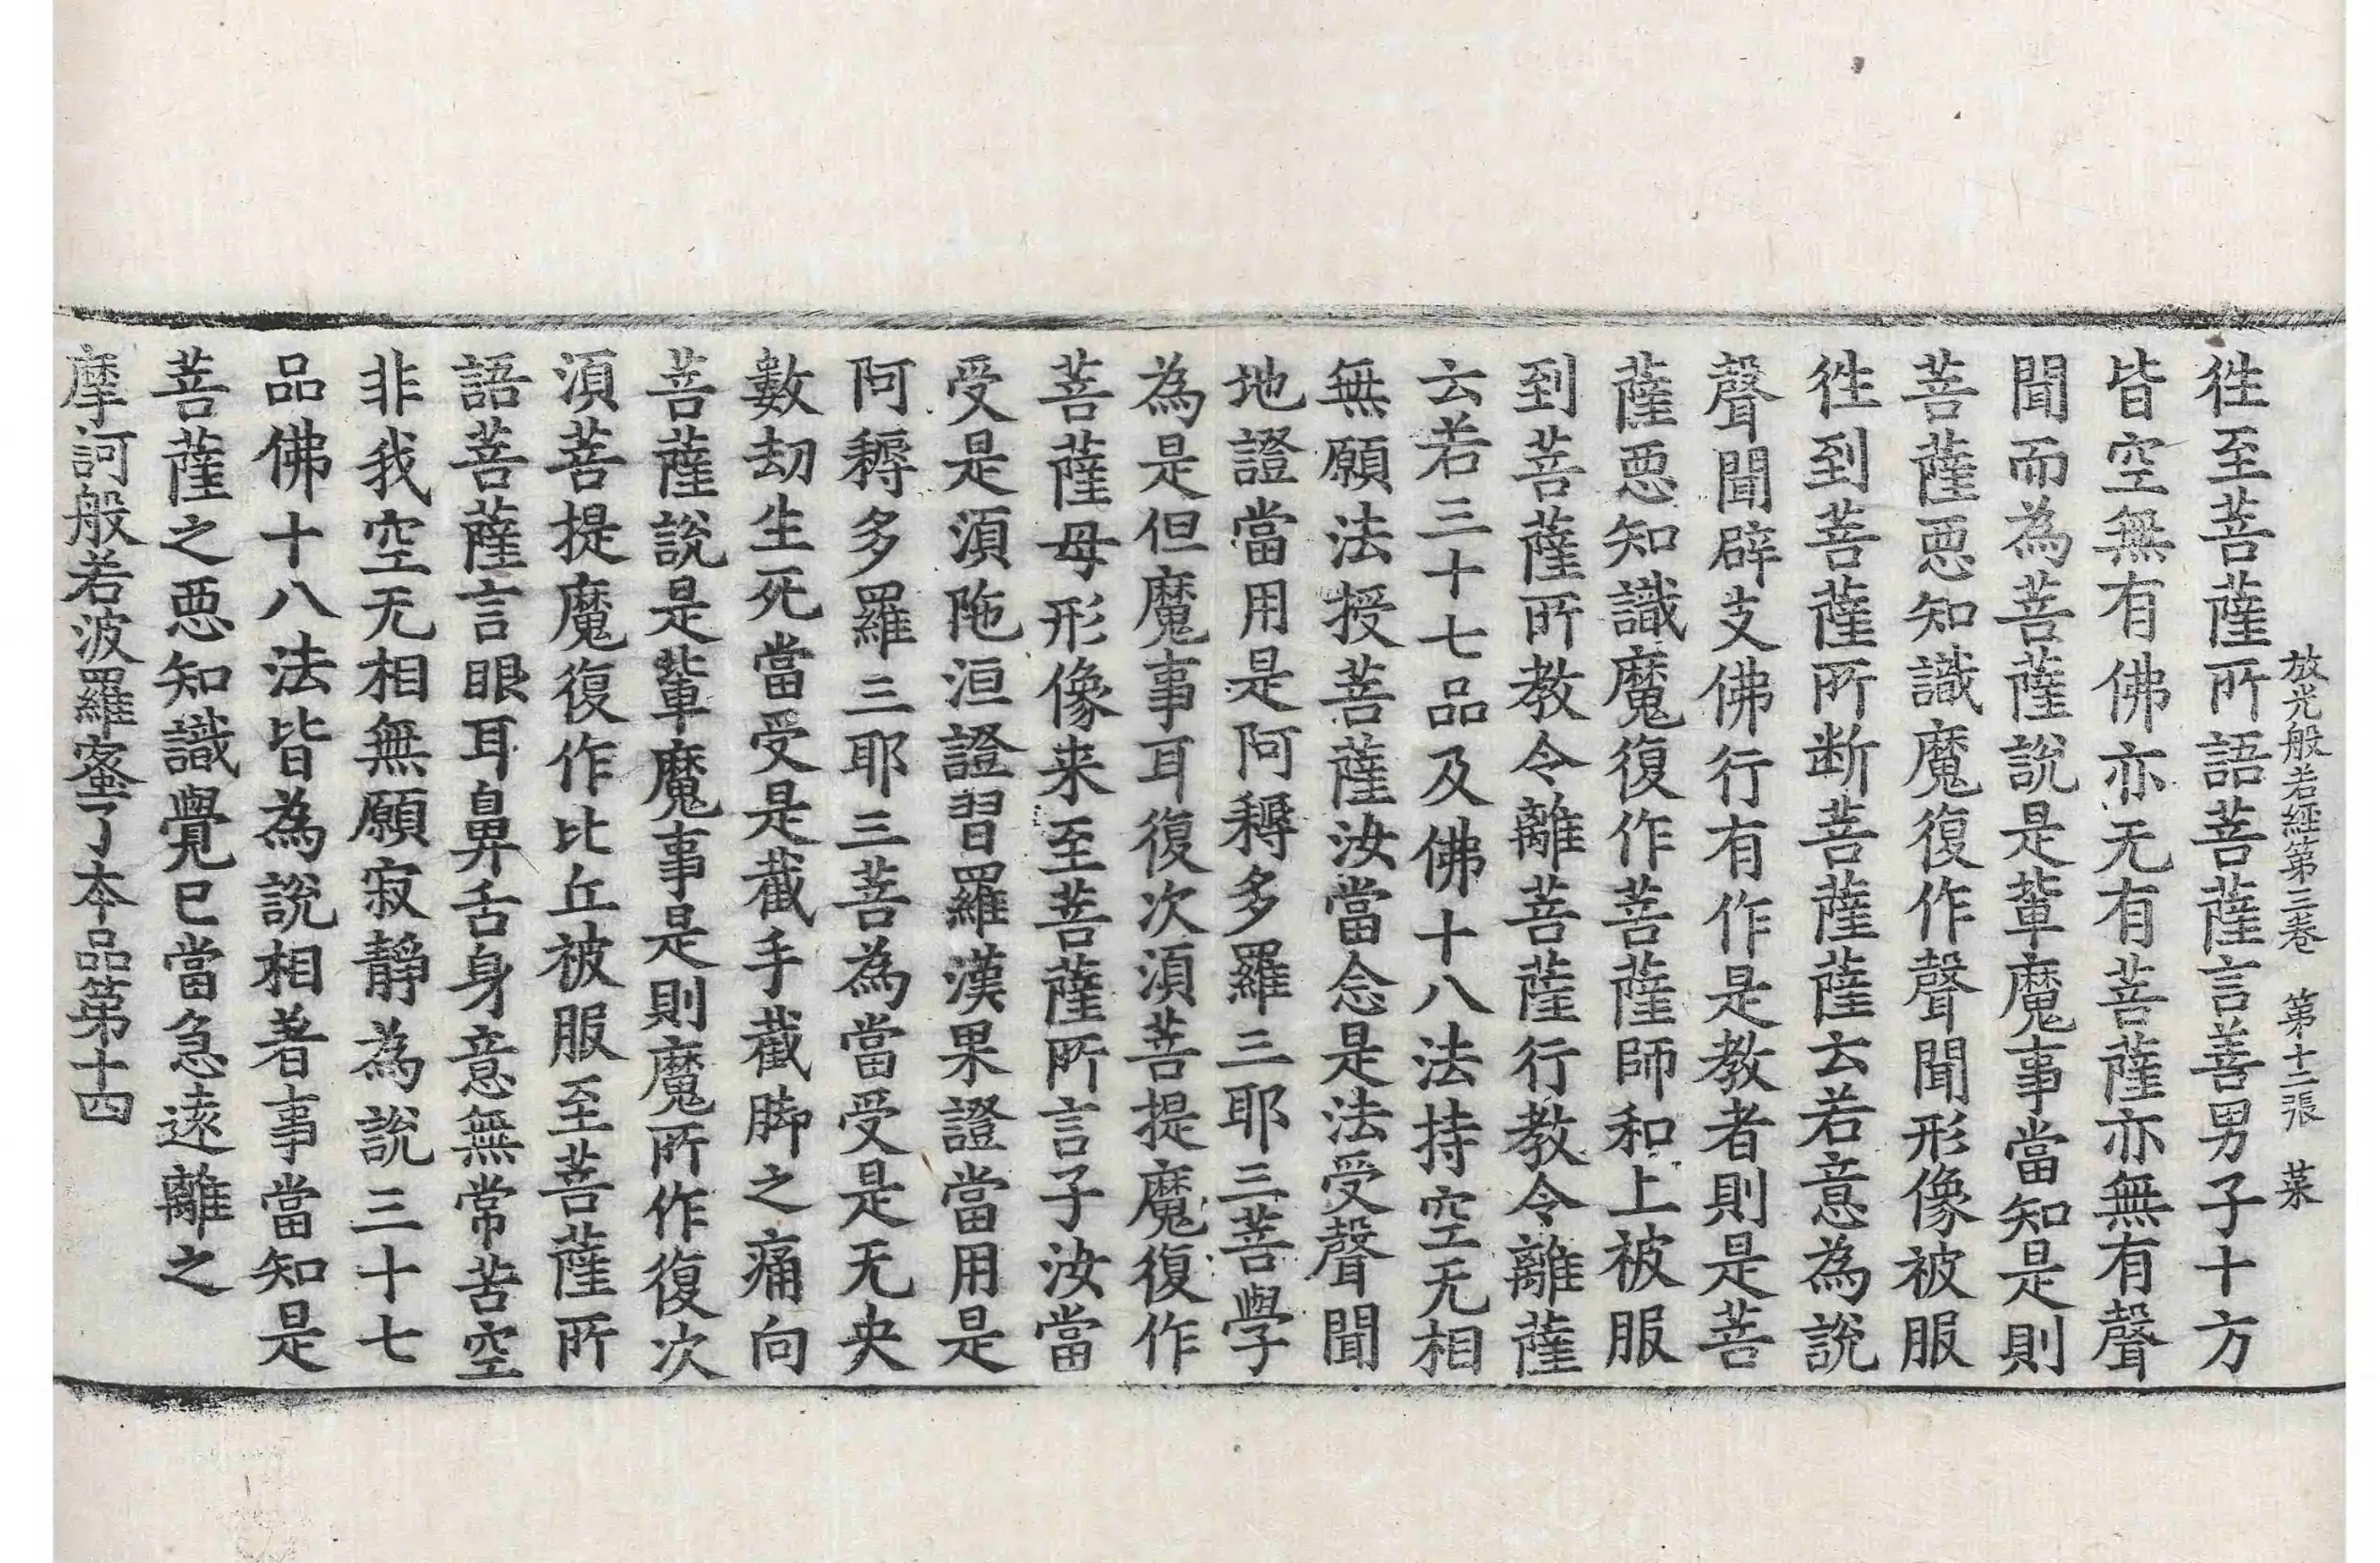 放光般若經第三卷 第十二張 菜
徃至菩薩所語菩薩言善男子十方
皆空無有佛亦无有菩薩亦無有聲
聞而為菩薩說是輩魔事當知是則
菩薩悪知識魔復作聲聞形像被服
徃到菩薩所断菩薩薩云若意為說
聲聞辟支佛行有作是教者則是菩
薩悪知識魔復作菩薩師和上被服
到菩薩所教令離菩薩行教令離薩
云若三十七品及佛十八法持空无相
無願法授菩薩汝當念是法受聲聞
地證當用是阿耨多羅三耶三菩學
為是但魔事耳復次湏菩提魔復作
菩薩母形像来至菩薩所言子汝當
受是湏陁洹證習羅漢果證當用是
阿耨多羅三耶三菩為當受是无央
數劫生死當受是截手截脚之痛向
菩薩說是輩魔事是則魔所作復次
湏菩提魔復作比丘被服至菩薩所
語菩薩言眼耳鼻舌身意無常苦空
非我空无相無願寂靜為說三十七
品佛十八法皆為說相著事當知是
菩薩之悪知識覺已當急遠離之
摩訶般若波羅蜜了本品第十四